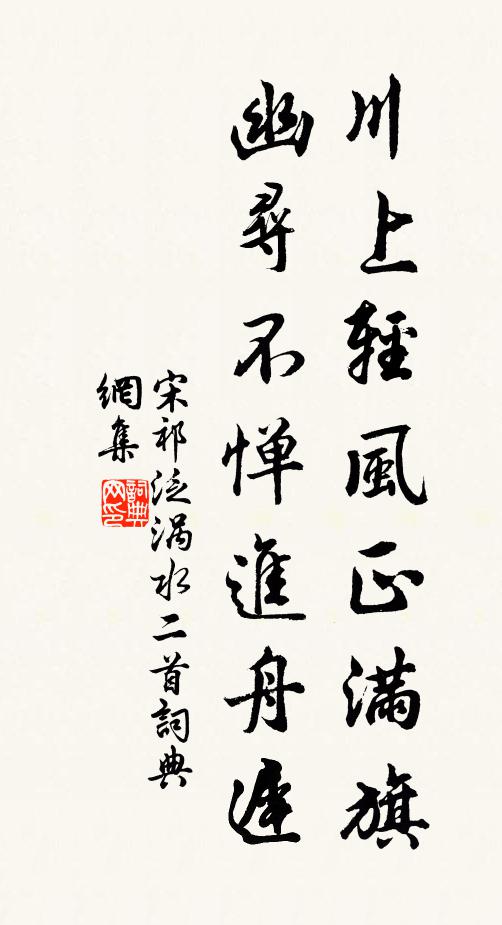 川上輕風正满旗
幽尋不惮進舟遲
宋祁泛涡水二首詞典
網集
詞典网印